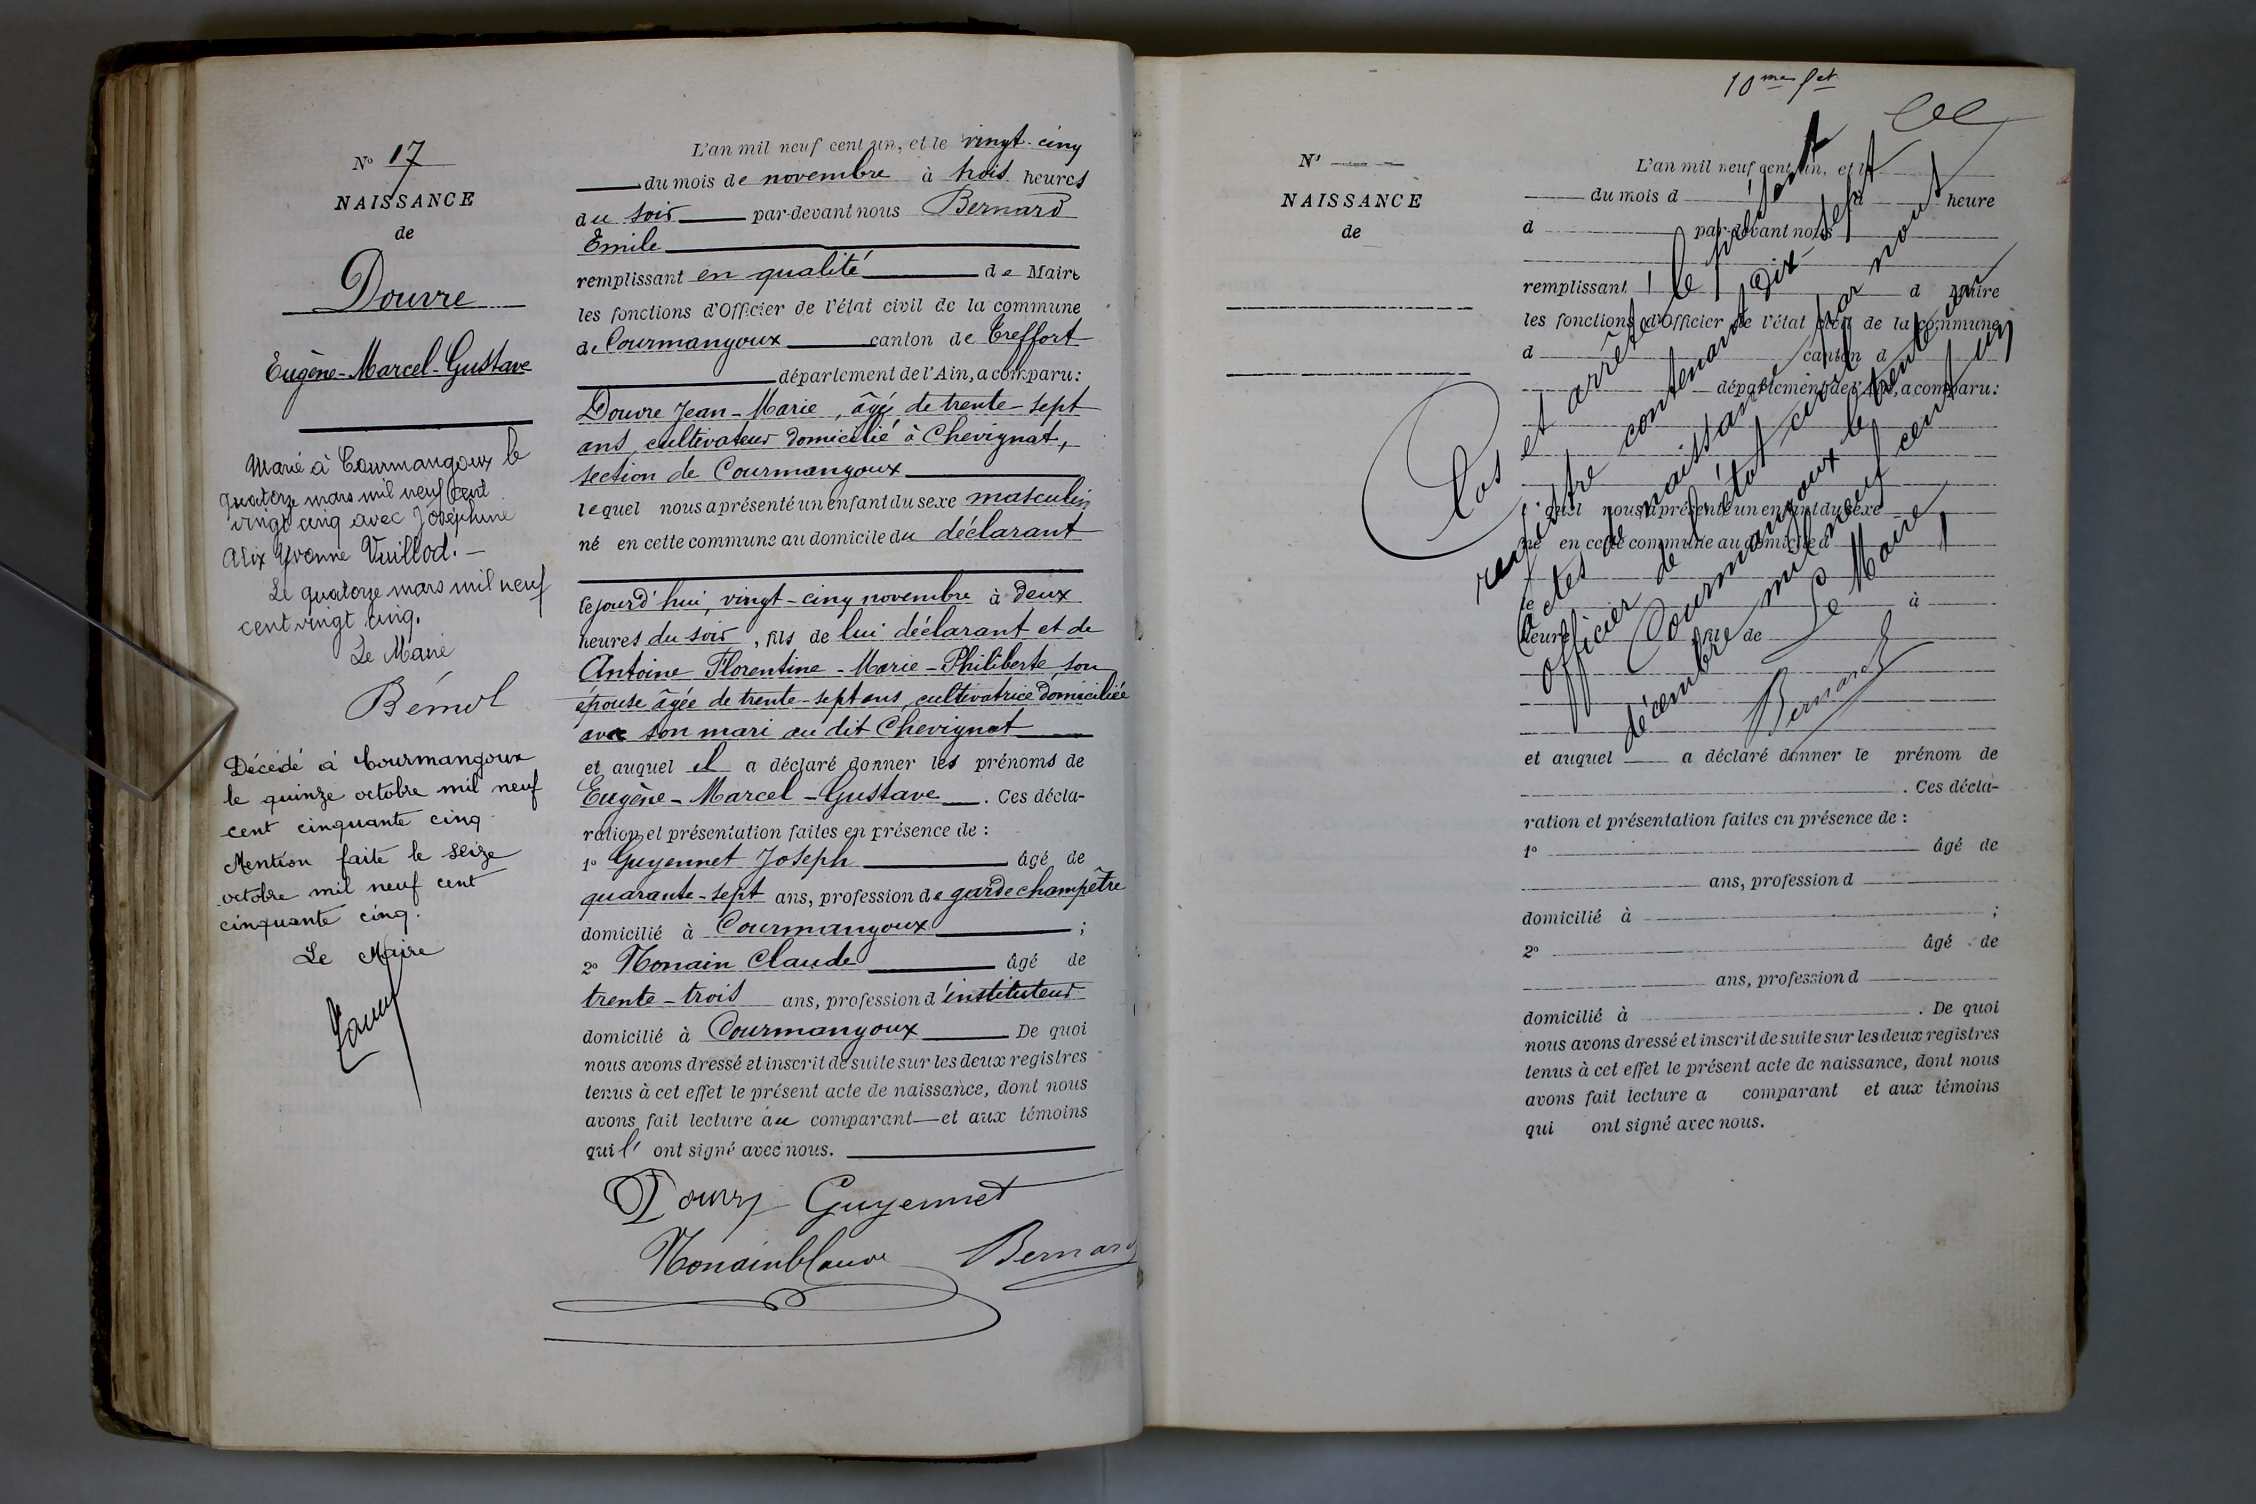 N° 17
NAISSANCE
de
Douvre
Eugène-Marcel-Gustave
Marié à Courmangoux le
quatorze mars mil neuf cent
vingt cinq avec Joséphine
Alix Yvonne Vuillod. —
Le quatorze mars mil neuf
cent vingt cinq.
Le Maire
Décédé à Courmangoux
le quinze octobre mil neuf
cent cinquante cinq.
Mention faite le seize
octobre mil neuf cent
cinquante cinq.
Le Maire
L'an mil neuf cent un, et le vingt-cinq
du mois de novembre à trois heures
du soir par-devant nous Bernard
Emile
remplissant en qualité de Maire
les fonctions d'Officier de l'état civil de la commune
de Courmangoux canton de Treffort
département de l'Ain, a comparu :
Douvre Jean-Marie, âgé de trente-sept
ans, cultivateur domicilié à Chevignat,
section de Courmangoux
lequel nous a présenté un enfant du sexe masculin
né en cette commune au domicile du déclarant
cejourd'hui, vingt-cinq novembre à deux
heures du soir, fils de lui déclarant et de
Antoine Florentine-Marie-Philiberte, son
épouse âgée de trente-sept ans, cultivatrice domiciliée
avec son mari au dit Chevignat
et auquel il a déclaré donner les prénoms de
Eugène-Marcel-Gustave. Ces décla-
ration et présentation faites en présence de :
1° Guyennet Joseph âgé de
quarante-sept ans, profession de garde champêtre
domicilié à Courmangoux ;
2° Monain Claude âgé de
trente-trois ans, profession d'instituteur
domicilié à Courmangoux De quoi
nous avons dressé et inscrit de suite sur les deux registres
tenus à cet effet le présent acte de naissance, dont nous
avons fait lecture au comparant — et aux témoins
qui l' ont signé avec nous.
Douvre Guyennet
Monain Claude Bernard
N°
NAISSANCE
de
L'an mil neuf cent un, et le
du mois d à heure
d par-devant nous
remplissant d Maire
les fonctions d'Officier de l'état civil de la commune
d canton d
département de l'Ain, a comparu :
quel nous a présenté un enfant du sexe
né en cette commune au domicile d
le à
heure du de
et auquel a déclaré donner le prénom de
. Ces décla-
ration et présentation faites en présence de :
1° âgé de
ans, profession d
domicilié à ;
2° âgé de
ans, profession d
domicilié à . De quoi
nous avons dressé et inscrit de suite sur les deux registres
tenus à cet effet le présent acte de naissance, dont nous
avons fait lecture a comparant et aux témoins
qui ont signé avec nous.
Clos et arrêté le présent
registre contenant dix-sept
actes de naissance par nous
officier de l'état civil
Courmangoux le trente un
décembre mil neuf cent un
Le Maire,
Bernard